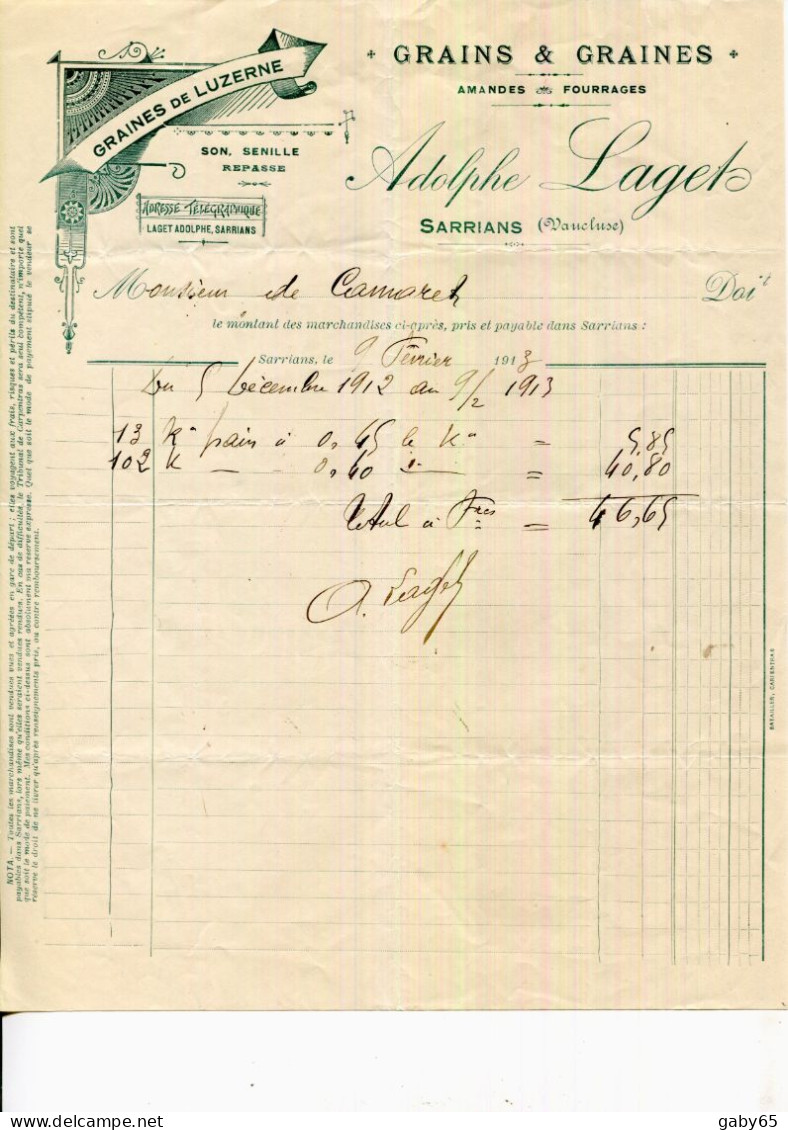 GRAINES DE LUZERNE
SON, SENILLE
REPASSE
ADRESSE TÉLÉGRAPHIQUE
LAGET ADOLPHE, SARRIANS
GRAINS & GRAINES
AMANDES FOURRAGES
Adolphe Laget
SARRIANS (Vaucluse)
Monsieur de Camaret Doit
le montant des marchandises ci-après, pris et payable dans Sarrians :
Sarrians, le 9 Février 1913
Du 5 décembre 1912 au 9/2 1913
13 Kº pain à 0,45 le Kº = 5,85
102 K — 0,40 — = 40,80
Total à Frcs = 46,65
A. Laget
NOTA. — Toutes les marchandises sont vendues vues et agréées en gare de départ ; elles voyagent aux frais, risques et périls du destinataire et sont
payables dans Sarrians, lors même qu'elles seraient vendues rendues. En cas de difficultés, le Tribunal de Carpentras sera seul compétent, n'importe quel
que soit le mode de paiement. Mes conditions ci-dessus sont absolument ma réserve expresse. Quel que soit le mode de payement stipulé le vendeur se
réserve le droit de ne livrer qu'après renseignements pris, ou contre remboursement.
BREAILLER, CARPENTRAS
delcampe.net
gaby65